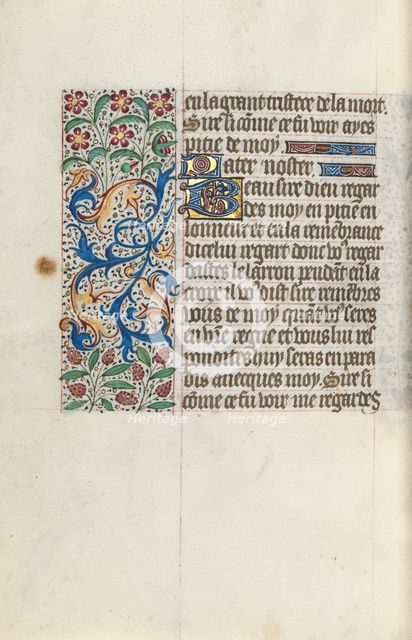 en la grant tristece de la mort.
Sire si cõme ce fu voir ayes
pitie de moy
Pater nostre
Beau sire dieu regar
des moy en pitie en
lonneur et en la remẽbrance
dicelui regart donc vo⁹ regar
dastes le larron pendãt en la
croix il vo⁹ dist sire mẽbres
vous de moy quant vo⁹ seres
en vr̃e regne et vous lui res
pondites huy seras en para
dis avecques moy. Sire si
cõme ce fu voir me regardes
Heritage
Heritage